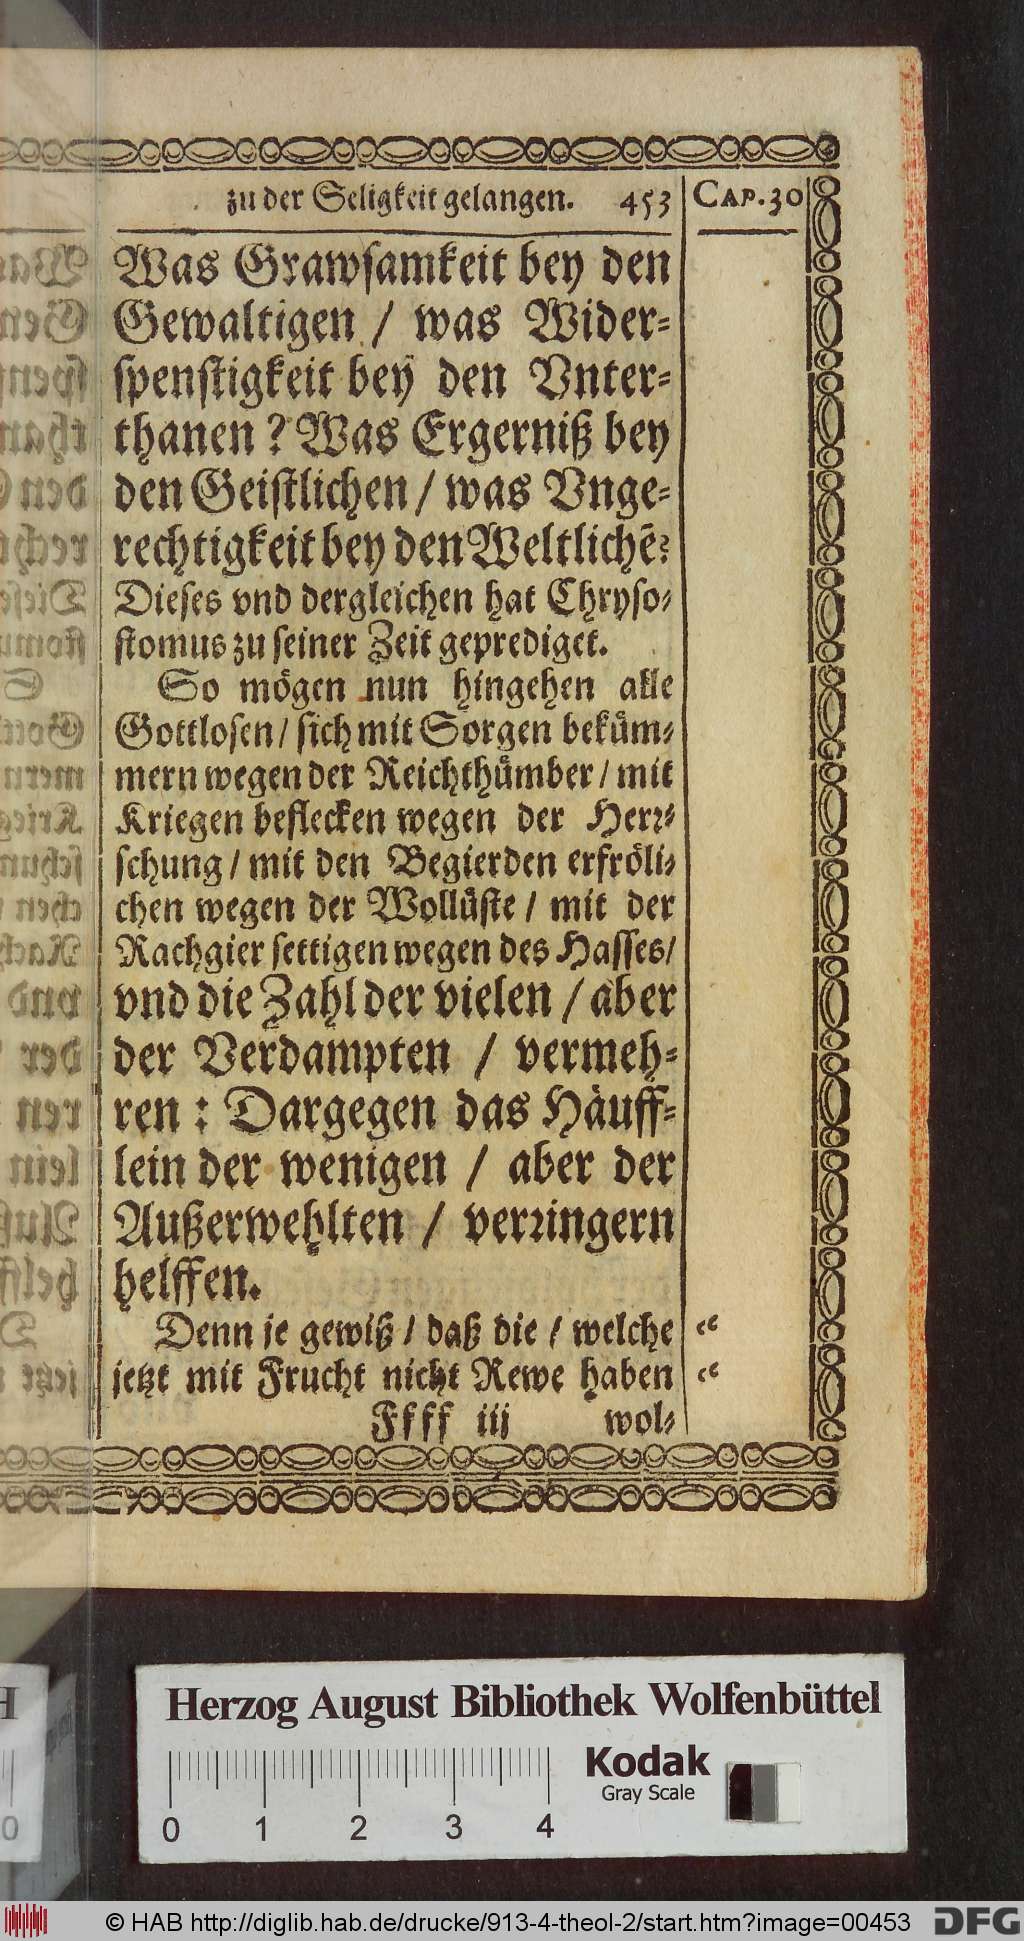 zu der Seligkeit gelangen. 453 CAP.30
Was Grawsamkeit bey den
Gewaltigen / was Wider-
spenstigkeit bey den Vnter-
thanen? Was Ergerniß bey
den Geistlichen / was Vnge-
rechtigkeit bey den Weltlichẽ?
Dieses vnd dergleichen hat Chryso-
stomus zu seiner Zeit geprediget.
So mögen nun hingehen alle
Gottlosen / sich mit Sorgen beküm-
mern wegen der Reichthümber / mit
Kriegen beflecken wegen der Herr-
schung / mit den Begierden erfröli-
chen wegen der Wollüste / mit der
Rachgier settigen wegen des Hasses /
vnd die Zahl der vielen / aber
der Verdampten / vermeh-
ren : Dargegen das Häuff-
lein der wenigen / aber der
Außerwehlten / verringern
helffen.
Denn je gewiß / daß die / welche “
jetzt mit Frucht nicht Rewe haben “
Ffff iij wol-
Herzog August Bibliothek Wolfenbüttel
Kodak
Gray Scale
0 1 2 3 4
© HAB http://diglib.hab.de/drucke/913-4-theol-2/start.htm?image=00453
DFG